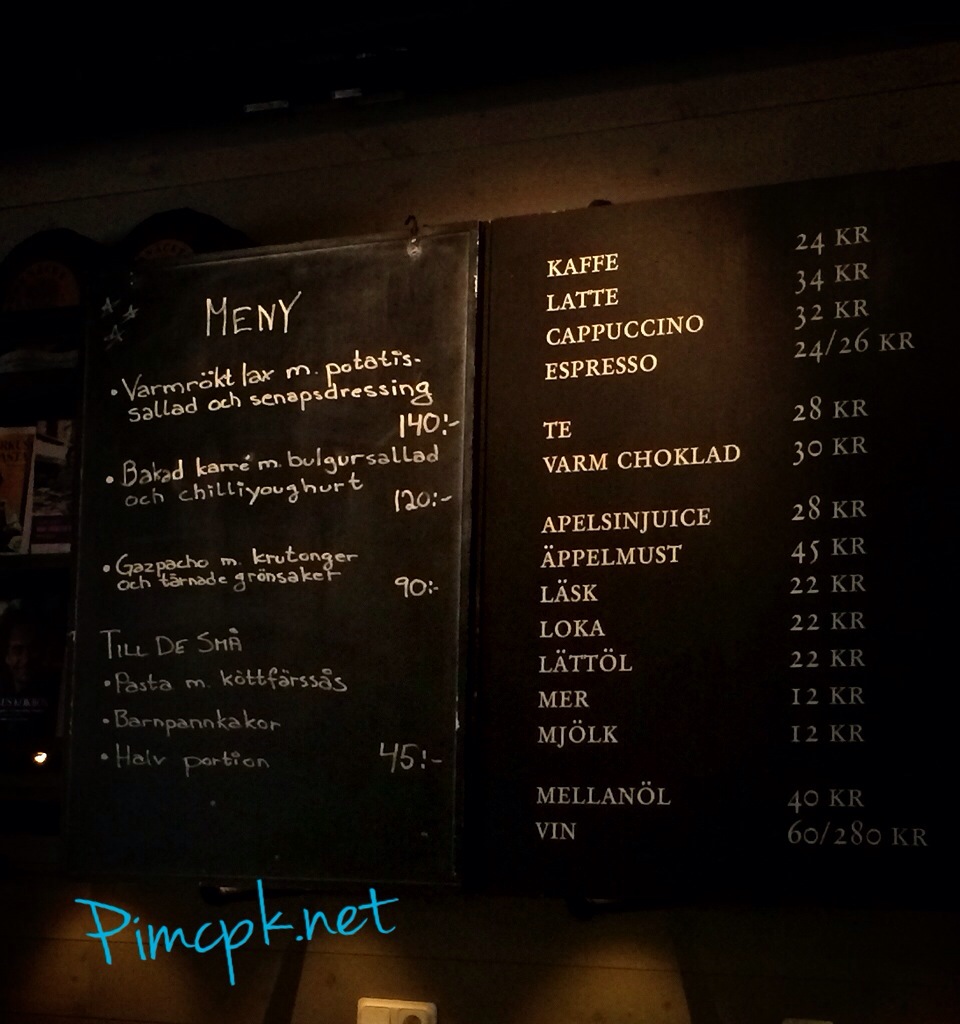 MENY
• Varmrökt lax m. potatis-
sallad och senapsdressing
140:-
• Bakad karré m. bulgursallad
och chilliyoughurt
120:-
• Gazpacho m. krutonger
och tärnade grönsaker
90:-
TILL DE SMÅ
• Pasta m. köttfärssås
• Barnpannkakor
• Halv portion 45:-
KAFFE 24 KR
LATTE 34 KR
CAPPUCCINO 32 KR
ESPRESSO 24/26 KR
TE 28 KR
VARM CHOKLAD 30 KR
APELSINJUICE 28 KR
ÄPPELMUST 45 KR
LÄSK 22 KR
LOKA 22 KR
LÄTTÖL 22 KR
MER 12 KR
MJÖLK 12 KR
MELLANÖL 40 KR
VIN 60/280 KR
Pimcpk.net